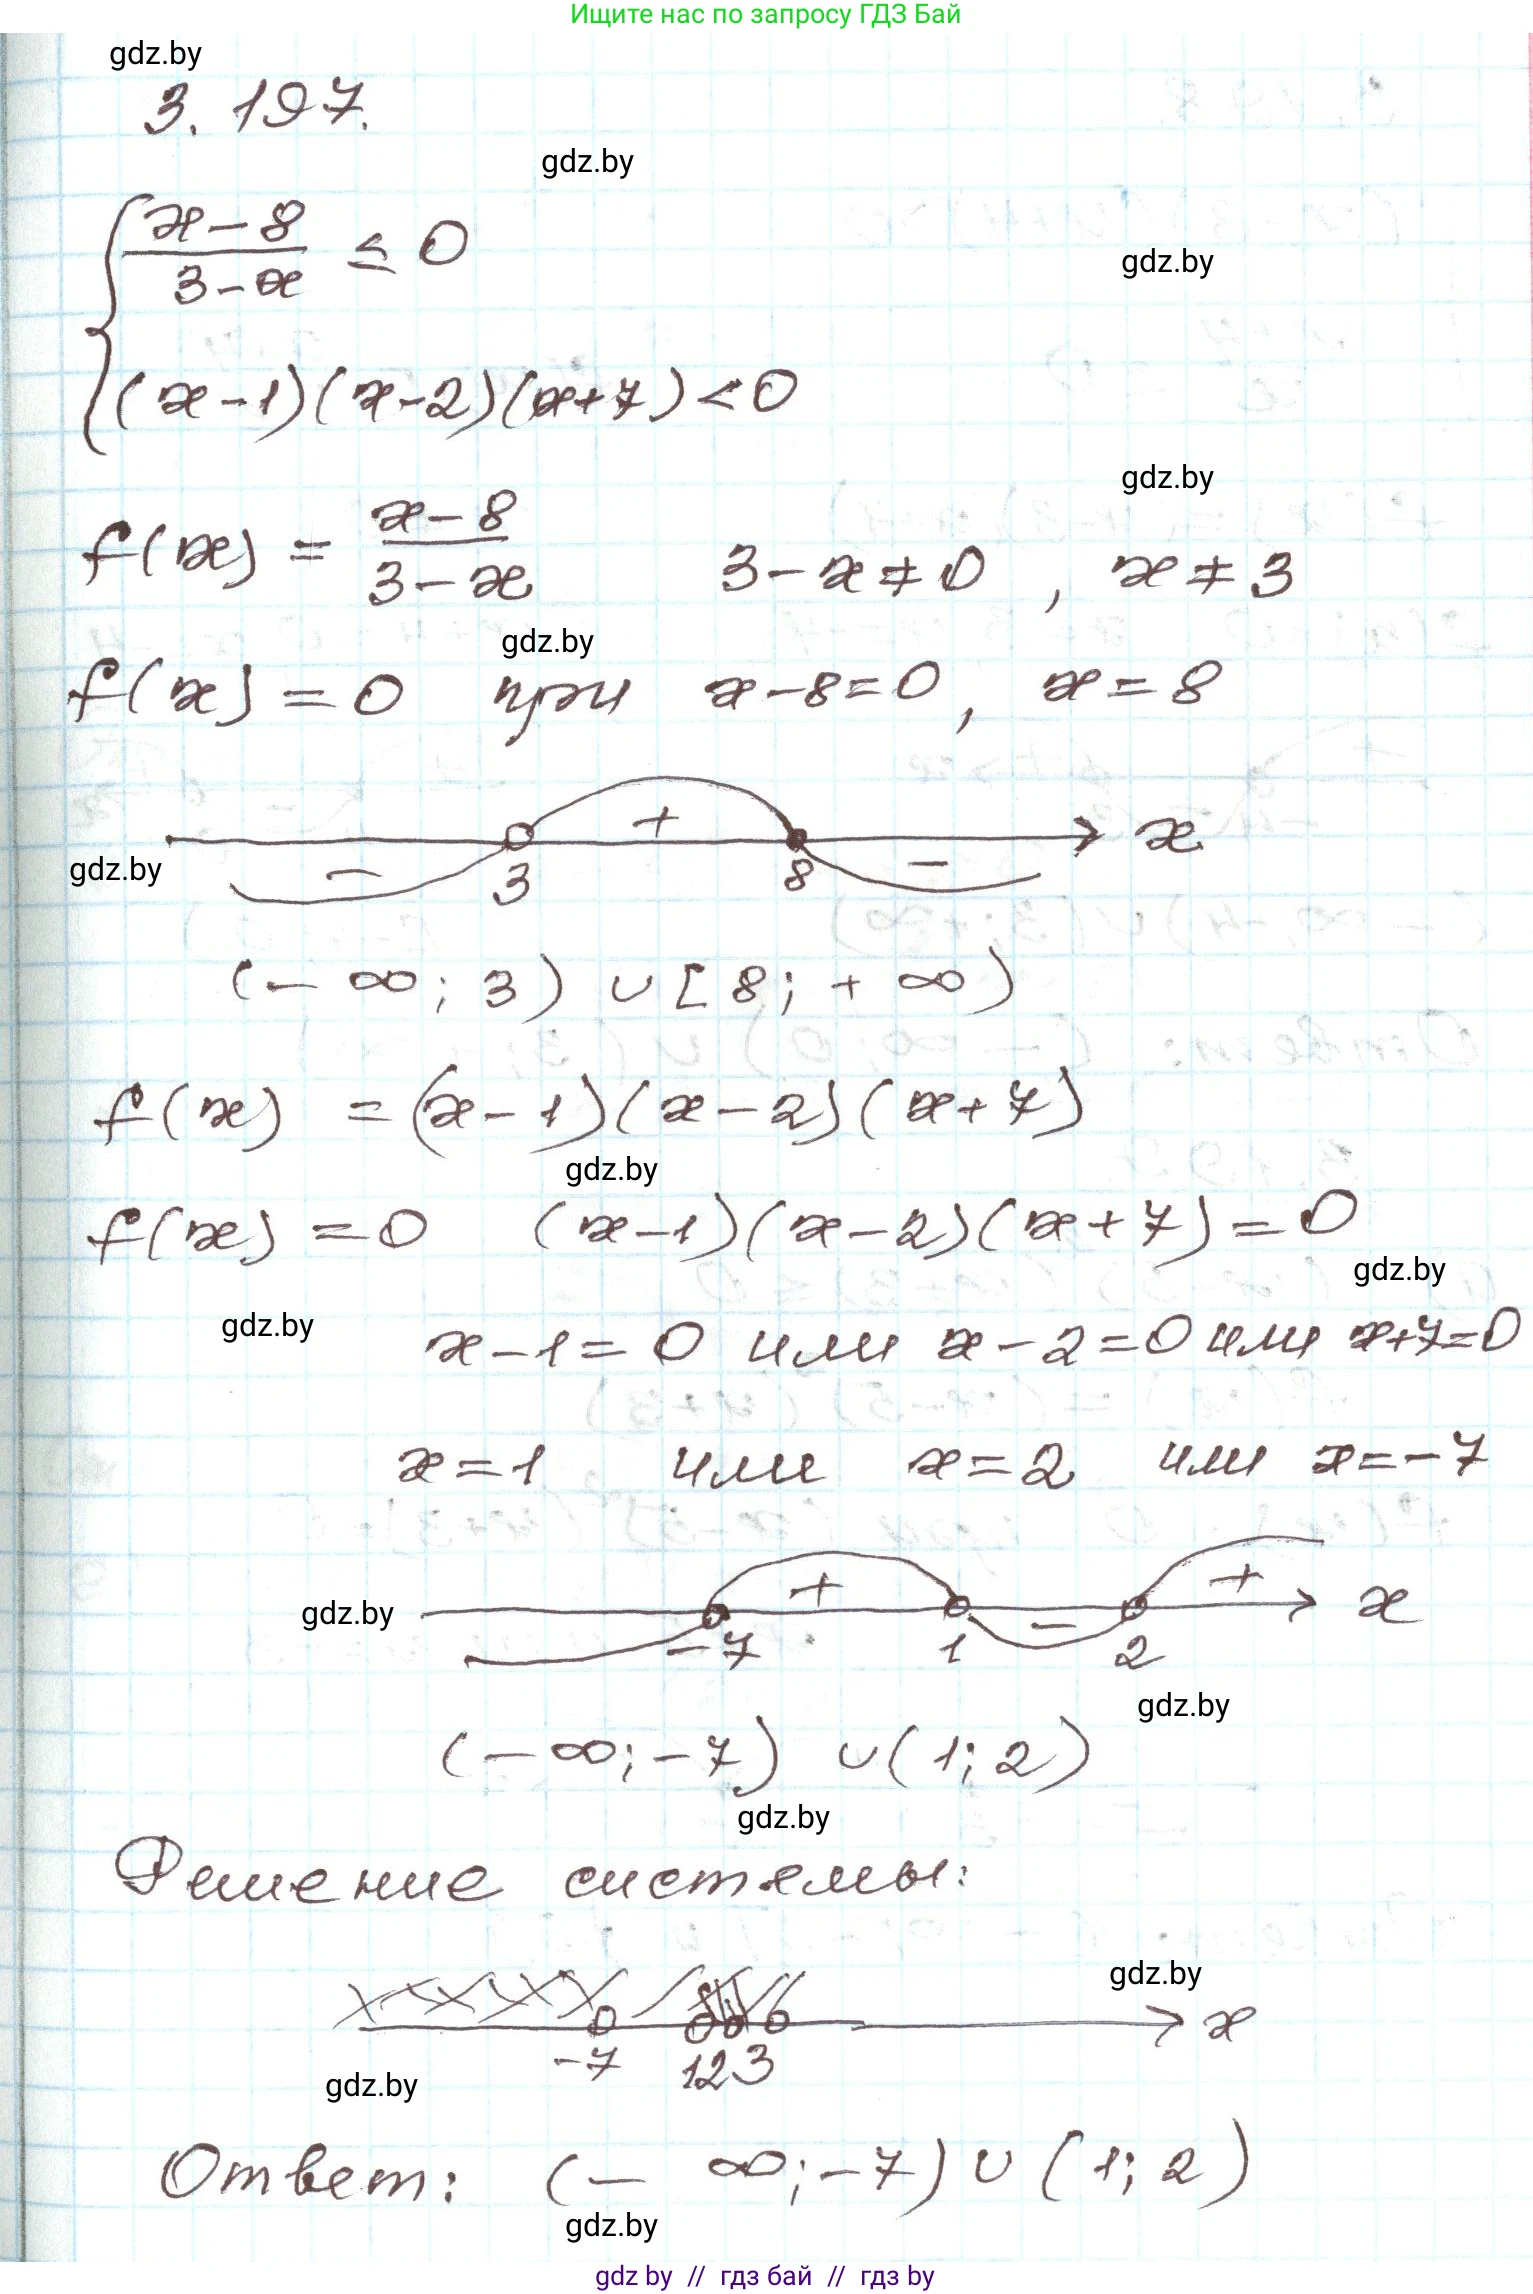 Ищите нас по запросу ГДЗ Бай
gdz.by
3.197.
gdz.by
x-8
3-x
≤ 0
gdz.by
(x-1)(x-2)(x+7)<0
gdz.by
f(x) = x-8 / 3-x   3-x≠0, x≠3
gdz.by
f(x)=0 при x-8=0, x=8
- + -
gdz.by
3 8 x
(-∞; 3) ∪ [8; +∞)
f(x) =(x-1)(x-2)(x+7)
gdz.by
f(x)=0 (x-1)(x-2)(x+7)=0
gdz.by
gdz.by
x-1=0 или x-2=0 или x+7=0
x=1 или x=2 или x=-7
+ - +
gdz.by
-7 1 2 x
gdz.by
(-∞; -7) ∪ (1; 2)
gdz.by
Решение системы:
gdz.by
x
-7 1 2 3
gdz.by
Ответ: (-∞; -7) ∪ (1; 2)
gdz.by
gdz by // гдз бай // гдз by